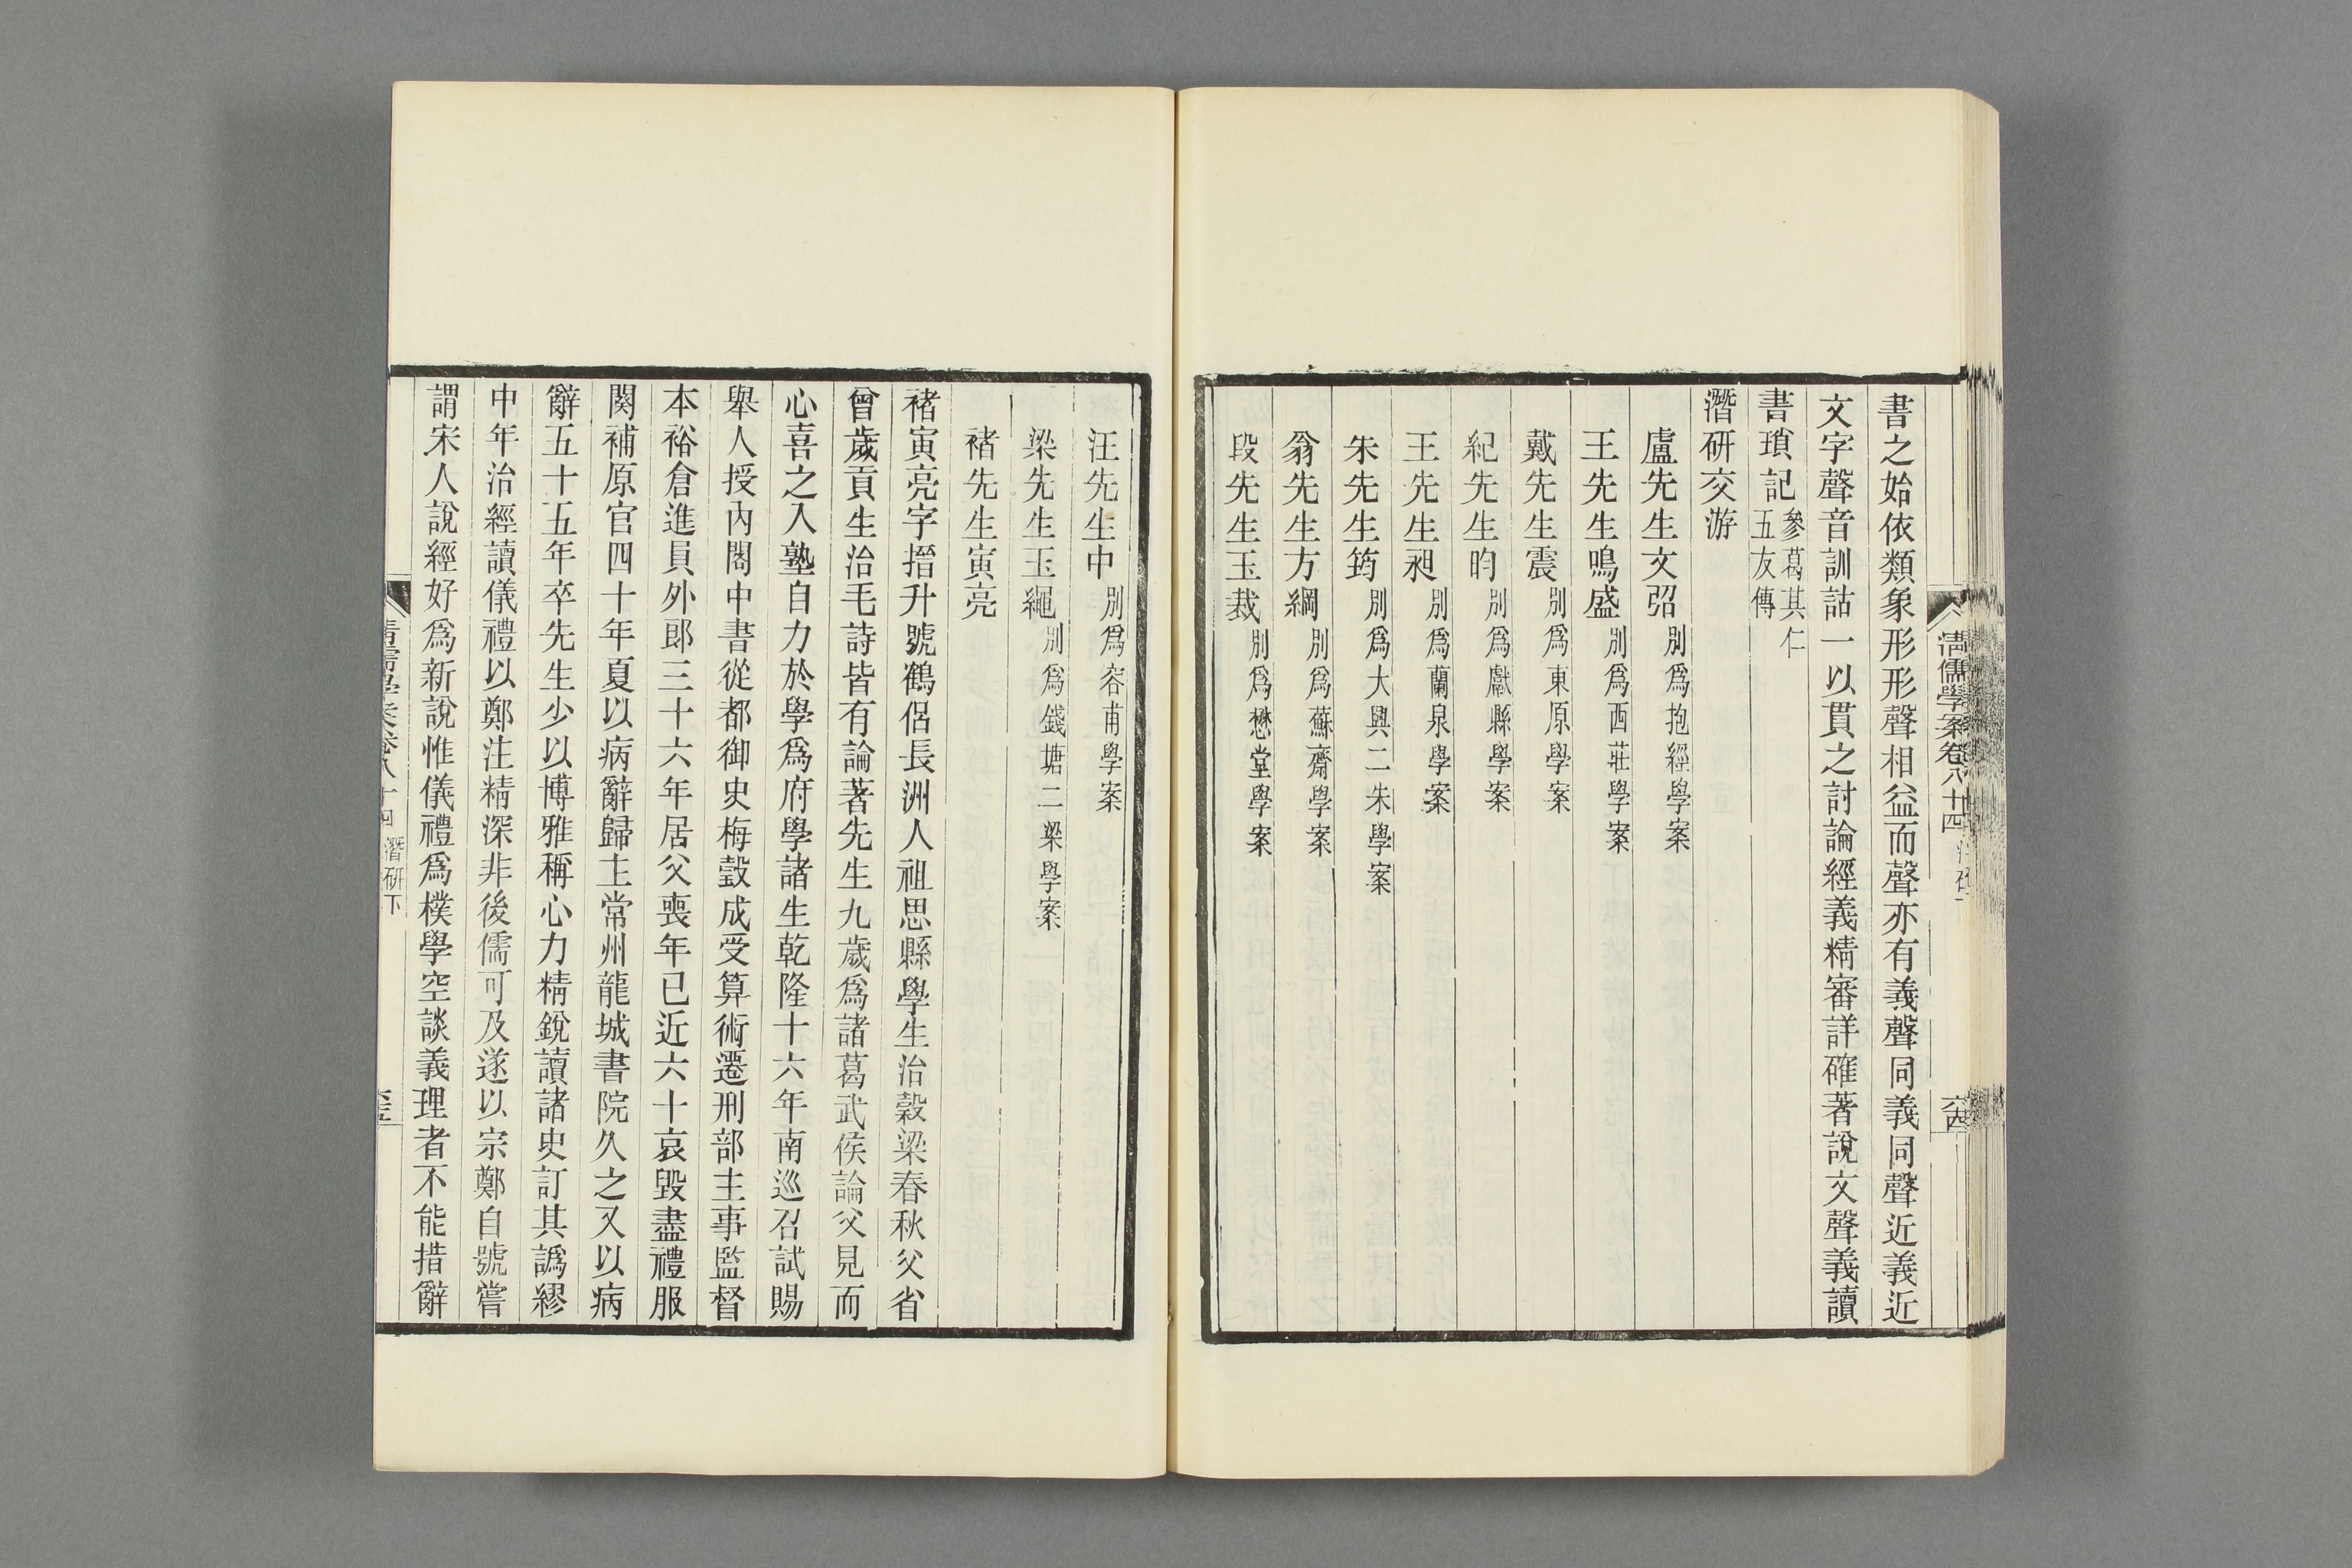 清儒學案卷八十四
六十四
書之始依類象形形聲相益而聲亦有義聲同義同聲近義近
文字聲音訓詁一以貫之討論經義精審詳確著說文聲義讀
書瑣記參葛其仁五友傳
潛研交游
盧先生文弨別爲抱經學案
王先生鳴盛別爲西莊學案
戴先生震別爲東原學案
紀先生昀別爲獻縣學案
王先生昶別爲蘭泉學案
朱先生筠別爲大興二朱學案
翁先生方綱別爲蘇齋學案
段先生玉裁別爲懋堂學案
汪先生中別爲容甫學案
梁先生玉繩別爲錢塘二梁學案
褚先生寅亮
褚寅亮字搢升號鶴侶長洲人祖思縣學生治穀梁春秋父省
曾歲貢生治毛詩皆有論著先生九歲爲諸葛武侯論父見而
心喜之入塾自力於學爲府學諸生乾隆十六年南巡召試賜
舉人授內閣中書從都御史梅瑴成受算術遷刑部主事監督
本裕倉進員外郎三十六年居父喪年已近六十哀毀盡禮服
闋補原官四十年夏以病辭歸主常州龍城書院久之又以病
辭五十五年卒先生少以博雅稱心力精銳讀諸史訂其譌繆
中年治經讀儀禮以鄭注精深非後儒可及遂以宗鄭自號嘗
謂宋人說經好爲新說惟儀禮爲樸學空談義理者不能措辭
清儒學案卷八十四
潛研下